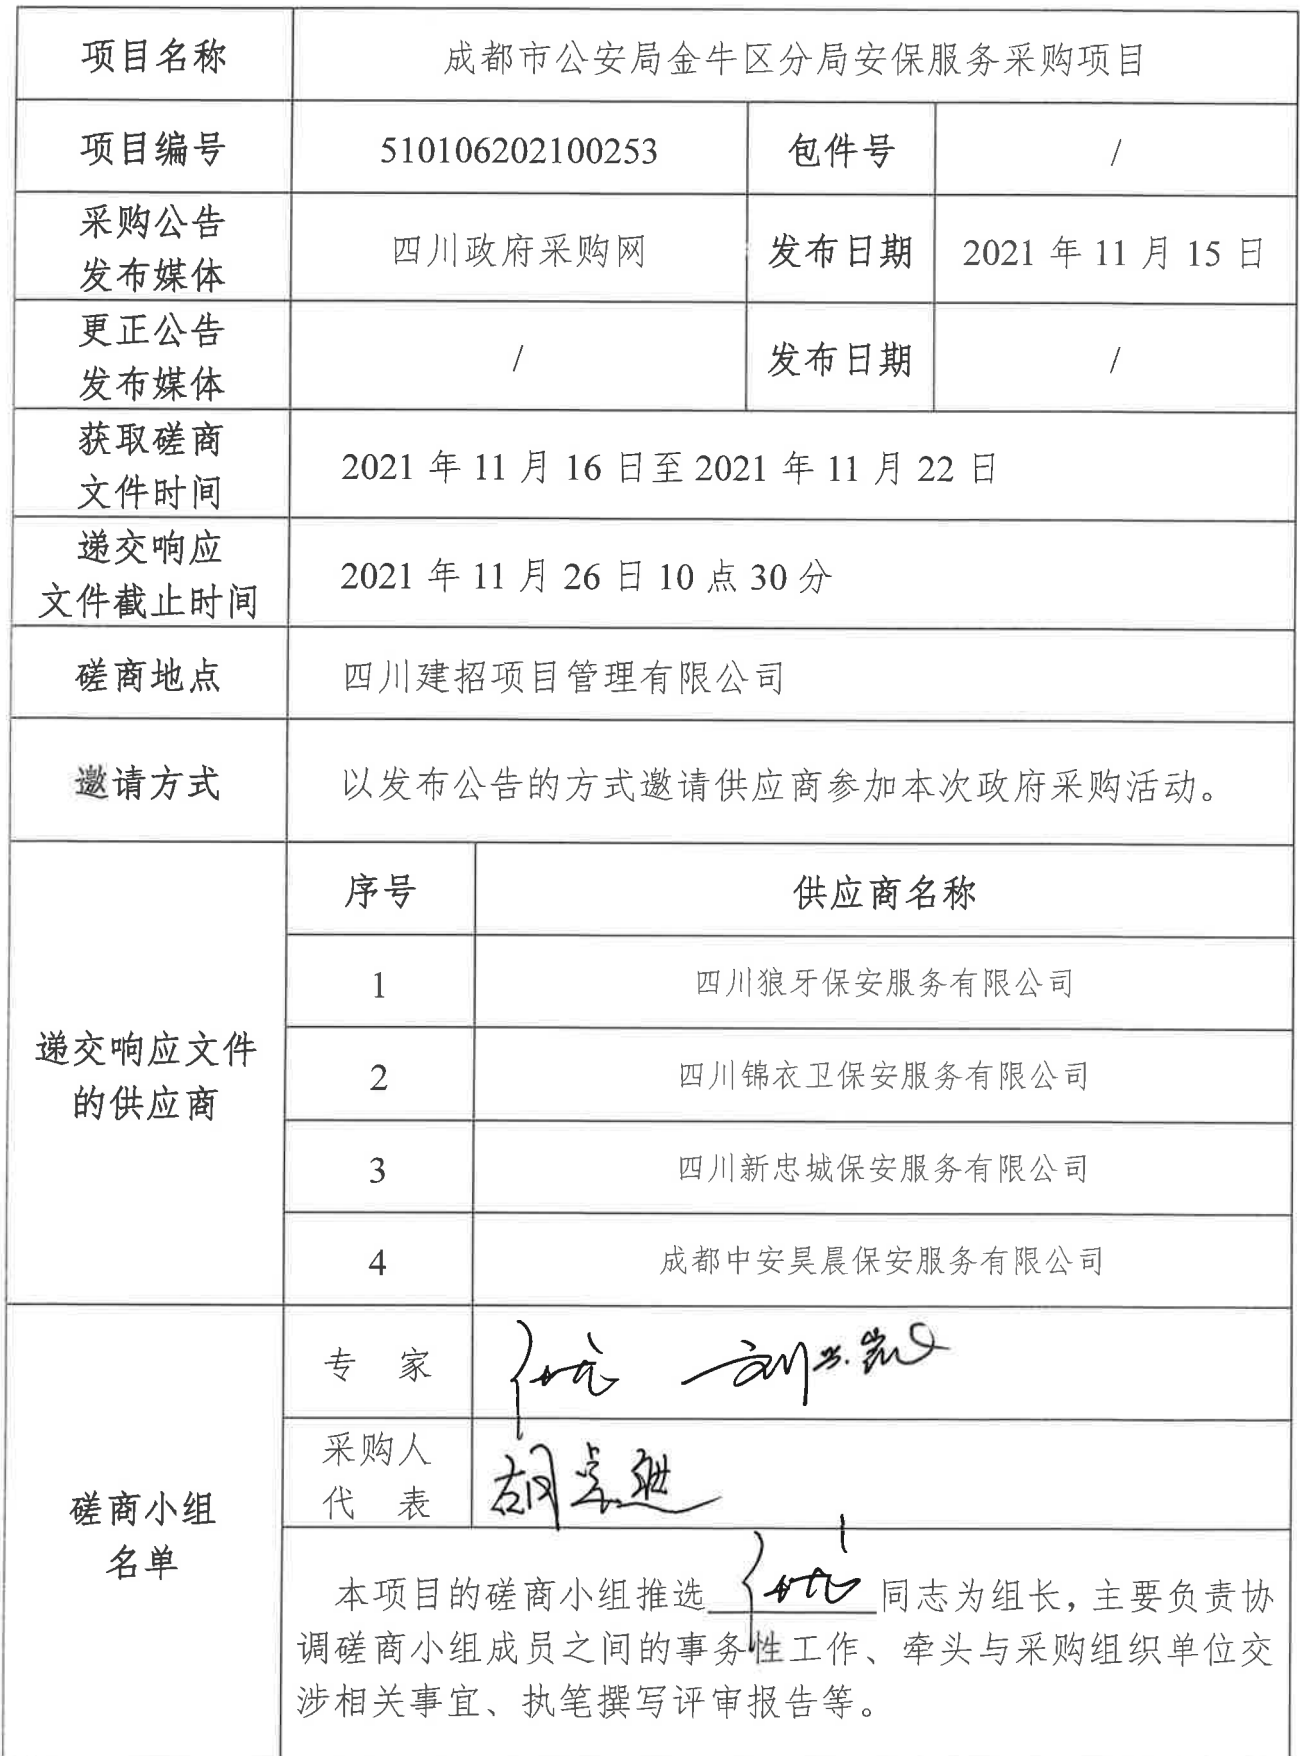 项目名称
成都市公安局金牛区分局安保服务采购项目
项目编号
510106202100253
包件号
/
采购公告
发布媒体
四川政府采购网
发布日期
2021 年 11 月 15 日
更正公告
发布媒体
/
发布日期
/
获取磋商
文件时间
2021 年 11 月 16 日至 2021 年 11 月 22 日
递交响应
文件截止时间
2021 年 11 月 26 日 10 点 30 分
磋商地点
四川建招项目管理有限公司
邀请方式
以发布公告的方式邀请供应商参加本次政府采购活动。
递交响应文件
的供应商
序号
供应商名称
1
四川狼牙保安服务有限公司
2
四川锦衣卫保安服务有限公司
3
四川新忠城保安服务有限公司
4
成都中安昊晨保安服务有限公司
磋商小组
名单
专 家
采购人
代 表
本项目的磋商小组推选 同志为组长，主要负责协
调磋商小组成员之间的事务性工作、牵头与采购组织单位交
涉相关事宜、执笔撰写评审报告等。